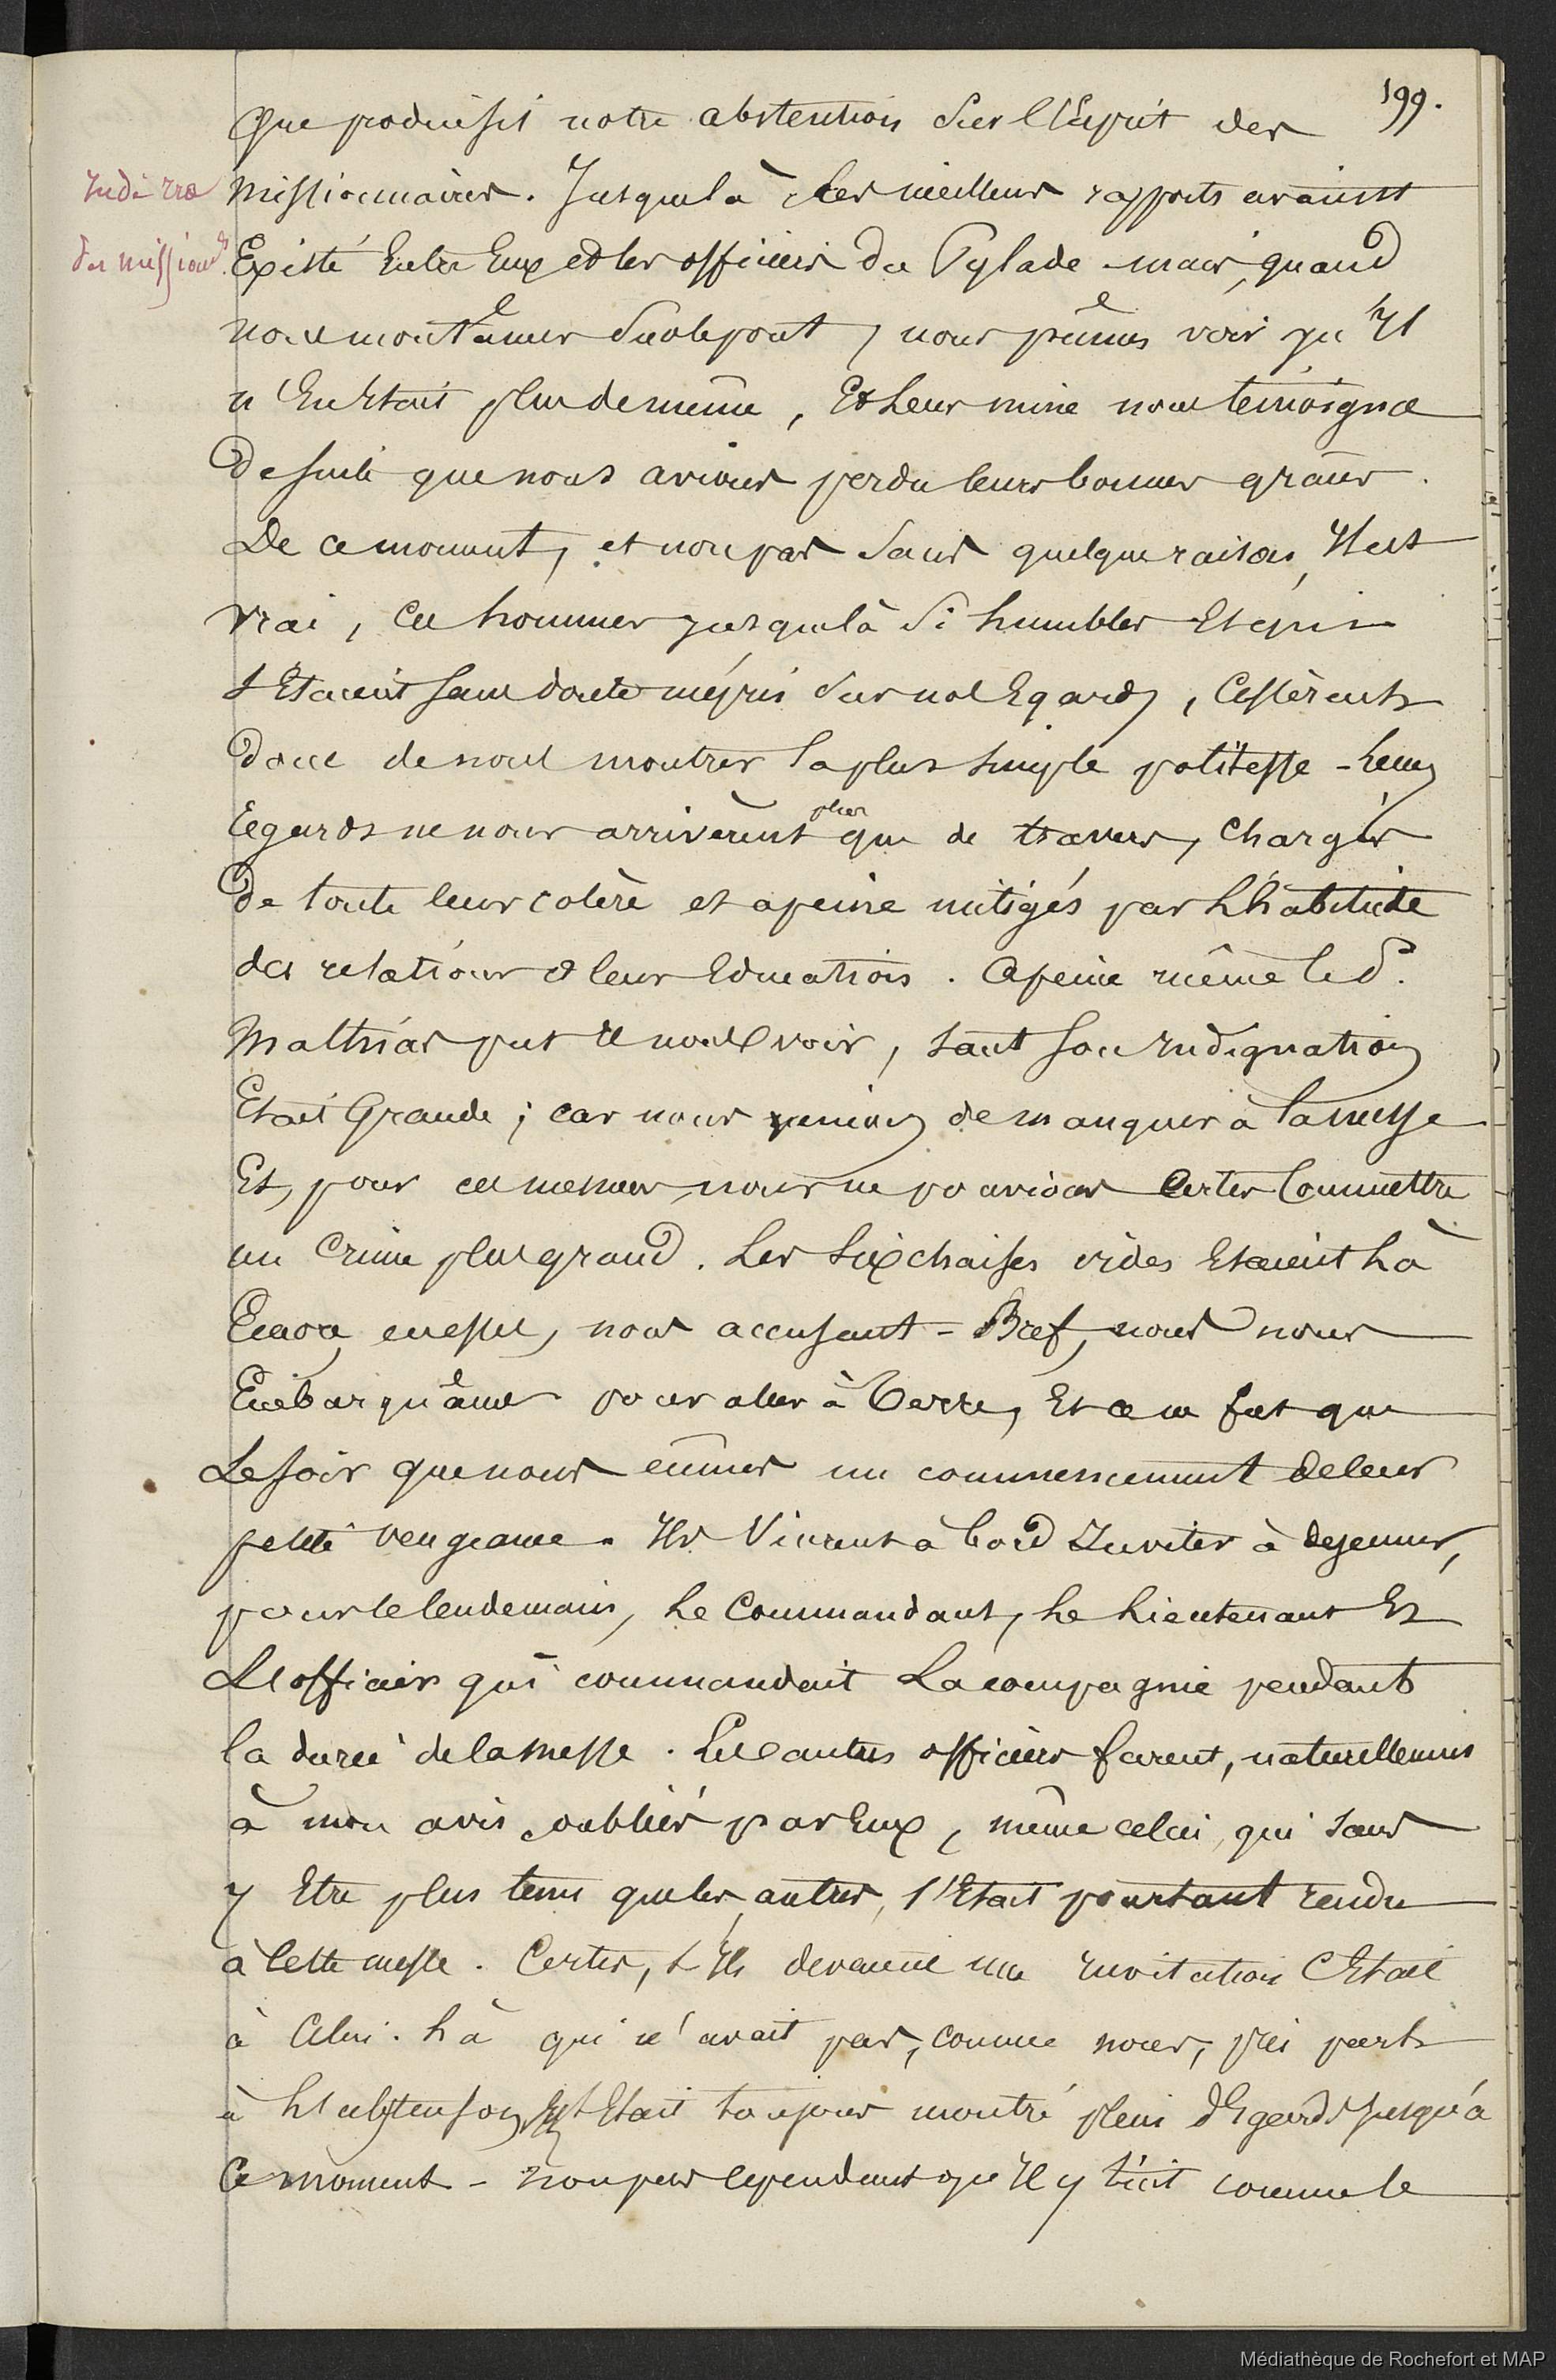 199.
Que produisit notre abstention sur l'Esprit des
missionnaires. Jusque là des meilleurs rapports avaient
Existé Entre Eux et les officiers du Pylade - mais, quand
nous montâmes sur le pont, nous pûmes voir qu'Il
n'En Etait plus de même, Et Leur mine nous témoigna
de suite que nous avions perdu leurs bonnes grâces.
De ce moment, et non pas sans quelque raison, Il est
vrai, ces hommes jusque là si humbles Et qui
s'Etaient sans doute mépris sur nos Egards, Cessèrent
donc de nous montrer la plus simple politesse - Leurs
regards ne nous arrivèrent plus que de travers, chargés
de toute leur colère et à peine mitigés par L'habitude
des relations & leur Education. A peine même le P.
Mathias put Il nous voir, tant son Indignation
Etait Grande ; car nous venions de manquer à la messe
Et, pour ces messieurs, nous ne pouvions Certes Commettre
un Crime plus grand. Les Six chaises vides Etaient Là
Encore, en effet, nous accusant - Bref, nous nous
Embarquâmes pour aller à Terre, Et ce ne fut que
Le soir que nous eûmes un commencement de leur
petite vengeance. Ils Vinrent à bord Inviter à dejeuner,
pour le lendemain, Le Commandant, Le Lieutenant Et
L'officier qui commandait La compagnie pendant
la durée de la messe. Les autres officiers furent, naturellement
à mon avis, oubliés par Eux, même celui, qui sans
y Etre plus tenu que les autres, s'Etait pourtant rendu
à Cette messe. Certes, s'Ils devaient une Invitation C'Etait
à Celui-Là qui n'avait pas, comme nous, pris part
à L'abstention, Et s'Etait toujours montré plein d'Egards Jusqu'à
Ce moment - non pas cependant qu'Il y tint comme le
des missions.